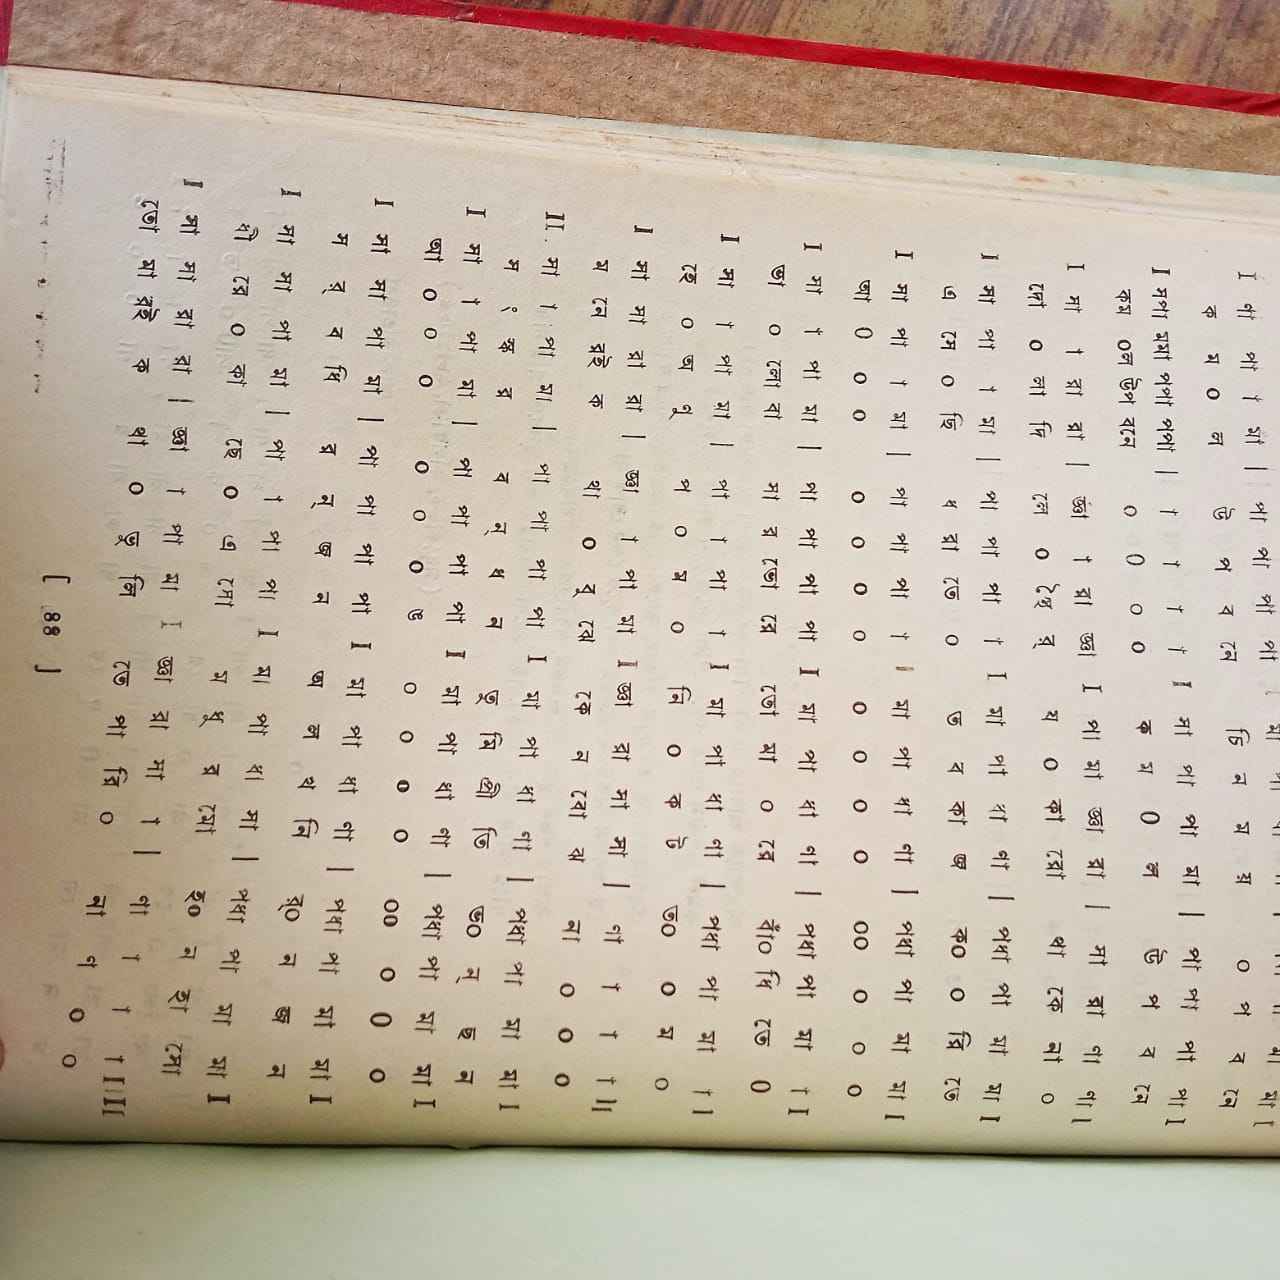 I পা পা া মা | পা পা পা পা
ক ম ০ ল উ প ব নে চি ন ম য় ০ প ব নে
I মপা মমা পপা পপা | া া া া I মা পা পা মা | পা পা পা পা I
কম ০ল উপ বনে ০ ০ ০ ০ ক ম ০ ল উ প ব নে
I মা া রা রা | জ্ঞা া রা জ্ঞা I পা মা জ্ঞা রা | সা রা ণা ণা I
দো ০ লা দি লে ০ হৈ র্ য ০ কা রো থা কে না ০
I মা পা া মা | পা পা পা া I মা পা ধা ণা | পধা পা মা মা I
এ সে ০ ছি ধ রা তে ০ ত ব কা জ ক০ ০ রি তে
I মা পা া মা | পা পা পা া I মা পা ধা ণা | পধা পা মা মা I
আ ০ ০ ০ ০ ০ ০ ০ ০ ০ ০ ০ ০০ ০ ০ ০
I মা া পা মা | পা পা পা পা I মা পা ধা ণা | পধা পা মা া I
ভা ০ লো বা সা র ডো রে তো মা ০ রে বাঁ০ ধি তে ০
I মা া পা মা | পা া পা া I মা পা ধা ণা | পধা পা মা া I
হে ০ অ প ০ ম ০ নি ০ ক ট ত০ ০ ম ০
I মা মা রা রা | জ্ঞা া পা মা I জ্ঞা রা সা সা | ণা া া া II
ম নে রই ক থা ০ বু ঝে কে ন বো ঝ না ০ ০ ০
II মা া পা মা | পা পা পা পা I মা পা ধা ণা | পধা পা মা মা I
ম ং ক র ব ন্ ধ ন তু মি প্রী তি ত০ ন্ ছ ন
I মা া পা মা | পা পা পা পা I মা পা ধা ণা | পধা পা মা মা I
আ ০ ০ ০ ০ ০ ০ ঙ ০ ০ ০ ০ ০০ ০ ০ ০
I মা মা পা মা | পা পা পা পা I মা পা ধা ণা | পধা পা মা মা I
ম র্ ব থি র ন্ জ ন অ ল খ নি র্০ ন জ ন
I মা মা পা মা | পা া পা পা I মা পা ধা মা | পধা পা মা মা I
ধী রে ০ কা ছে ০ এ সো ম ধু র মো হ০ ন হা সো
I মা মা রা রা | জ্ঞা া পা মা I জ্ঞা রা সা া | ণা া া া III
তো মা রই ক থা ০ ভু লি তে পা রি ০ না ০ ০
[ ৪৪ ]